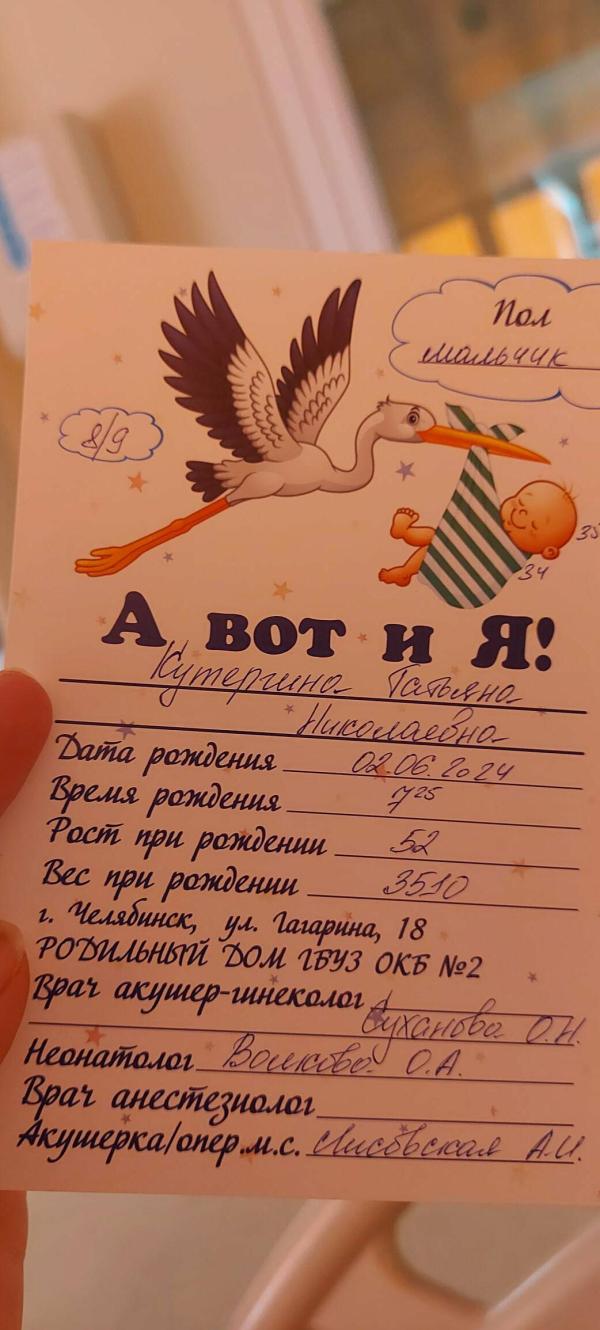 Пол
мальчик
8/9
35
34
А вот и Я!
Кутергина Татьяна
Николаевна
Дата рождения 02.06.2024
Время рождения 7 25
Рост при рождении 52
Вес при рождении 3510
г. Челябинск, ул. Гагарина, 18
РОДИЛЬНЫЙ ДОМ ГБУЗ ОКБ №2
Врач акушер-гинеколог
Суханова О.Н.
Неонатолог Волкова О.А.
Врач анестезиолог
Акушерка/опер.м.с. Лисовская А.И.